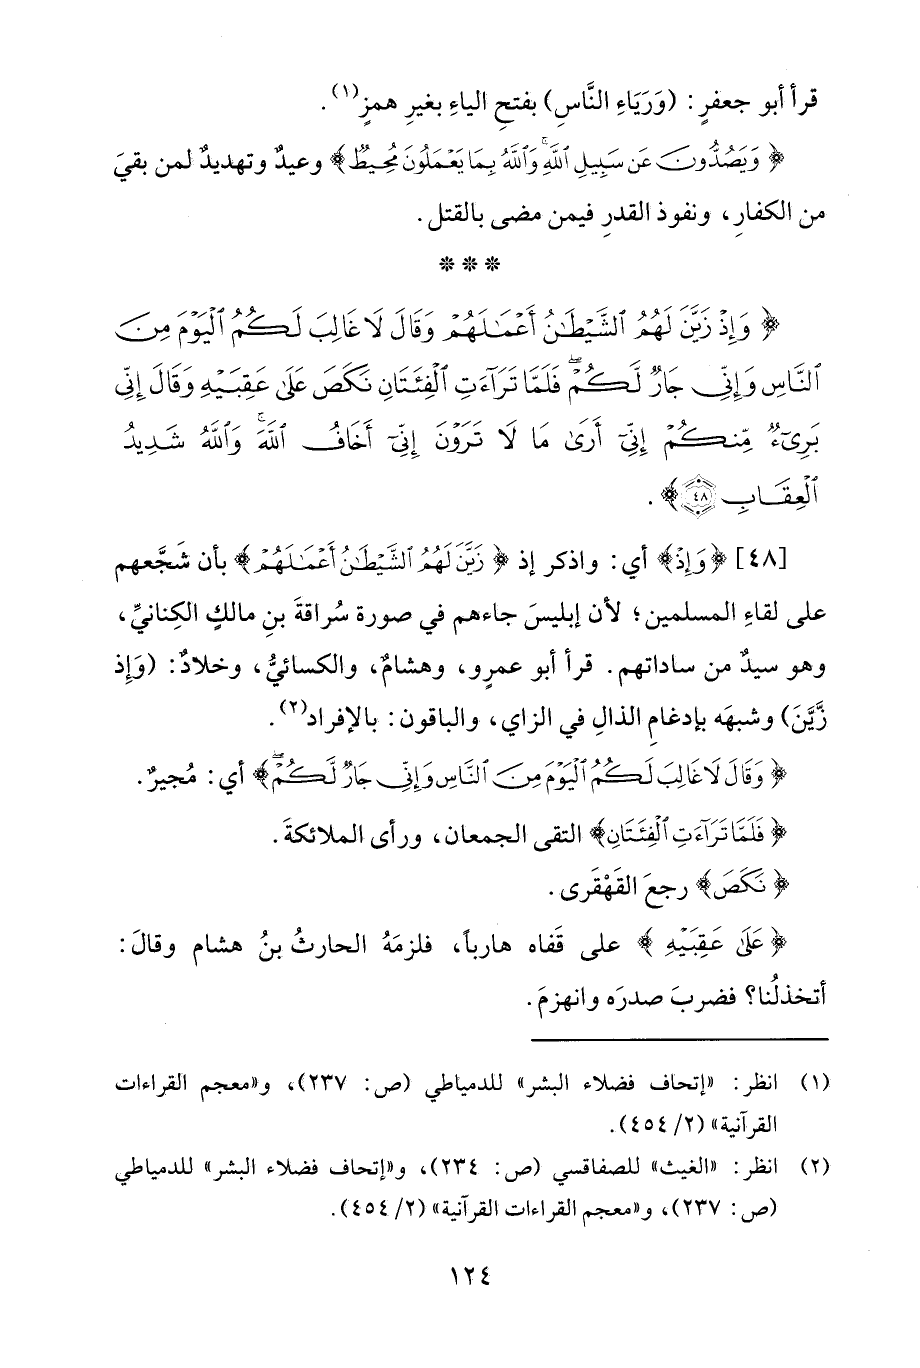 قرأ أبو جعفرٍ: (وَرِيَاءَ النَّاسِ) بفتحِ الياءِ بغيرِ همزٍ(١).
﴿وَيَصُدُّونَ عَن سَبِيلِ ٱللَّهِۚ وَٱللَّهُ بِمَا يَعۡمَلُونَ مُحِيطٞ﴾ وعيدٌ وتهديدٌ لمن بقيَ
من الكفارِ، ونفوذ القدرِ فيمن مضى بالقتلِ.
***
﴿وَإِذۡ زَيَّنَ لَهُمُ ٱلشَّيۡطَٰنُ أَعۡمَٰلَهُمۡ وَقَالَ لَا غَالِبَ لَكُمُ ٱلۡيَوۡمَ مِنَ
ٱلنَّاسِ وَإِنِّي جَارٞ لَّكُمۡۖ فَلَمَّا تَرَآءَتِ ٱلۡفِئَتَانِ نَكَصَ عَلَىٰ عَقِبَيۡهِ وَقَالَ إِنِّي
بَرِيٓءٞ مِّنكُمۡ إِنِّيٓ أَرَىٰ مَا لَا تَرَوۡنَ إِنِّيٓ أَخَافُ ٱللَّهَۚ وَٱللَّهُ شَدِيدُ
ٱلۡعِقَابِ ٤٨﴾.
[٤٨] ﴿وَإِذۡ﴾ أي: واذكر إذ ﴿زَيَّنَ لَهُمُ ٱلشَّيۡطَٰنُ أَعۡمَٰلَهُمۡ﴾ بأن شَجَّعهم
على لقاءِ المسلمين؛ لأن إبليسَ جاءهم في صورة سُراقةَ بنِ مالكٍ الكِنانيِّ،
وهو سيدٌ من ساداتهم. قرأ أبو عمرٍو، وهشامٌ، والكسائيُّ، وخلادٌ: (وَإِذ
زَّيَّنَ) وشبهَه بإدغامِ الذالِ في الزاي، والباقون: بالإفرادِ(٢).
﴿وَقَالَ لَا غَالِبَ لَكُمُ ٱلۡيَوۡمَ مِنَ ٱلنَّاسِ وَإِنِّي جَارٞ لَّكُمۡۖ﴾ أي: مُجيرٌ.
﴿فَلَمَّا تَرَآءَتِ ٱلۡفِئَتَانِ﴾ التقى الجمعان، ورأى الملائكةَ.
﴿نَكَصَ﴾ رجعَ القَهْقَرى.
﴿عَلَىٰ عَقِبَيۡهِ﴾ على قَفاه هارباً، فلزمَهُ الحارثُ بنُ هشام وقالَ:
أتخذلُنا؟ فضربَ صدرَه وانهزمَ.
(١) انظر: «إتحاف فضلاء البشر» للدمياطي (ص: ٢٣٧)، و«معجم القراءات
القرآنية» (٢/ ٤٥٤).
(٢) انظر: «الغيث» للصفاقسي (ص: ٢٣٤)، و«إتحاف فضلاء البشر» للدمياطي
(ص: ٢٣٧)، و«معجم القراءات القرآنية» (٢/ ٤٥٤).
١٢٤